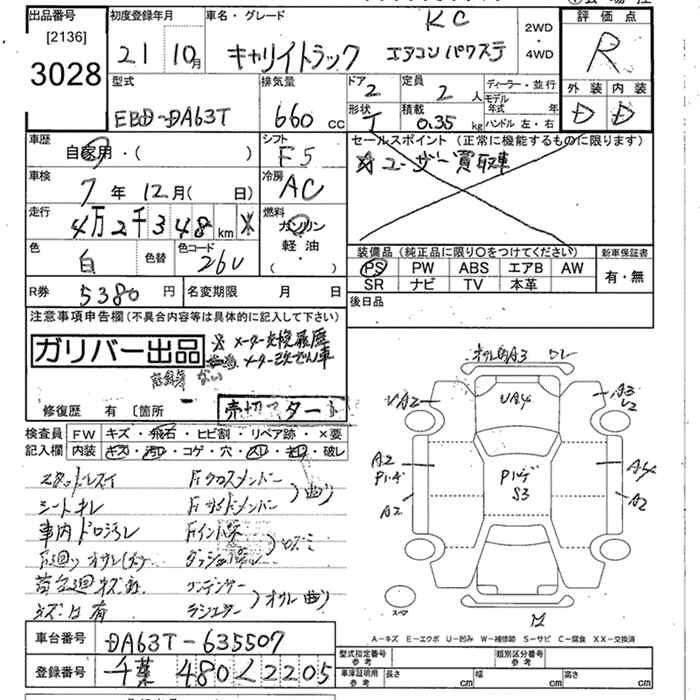 出品番号 初度登録年月 車名・グレード KC 評価点
[2136] 2WD
3028 21 10月 キャリイトラック エアコンパワステ ・ R
4WD
型式 排気量 ドア 定員 ディーラー・並行 外装 内装
2 2人 モデル年式 年
EBD-DA63T 660cc 形状 積載 0.35kg ハンドル 左・右 D D
車歴 シフト セールスポイント (正常に機能するものに限ります)
自家用・( ) F5 ☆ユーザー買取車
車検 冷房
7年12月( 日) AC
走行 燃料
4万2千348km ※ ガソリン
軽油
( )
色 白 色替 色コード 26U
装備品 (純正品に限り○をつけてください) 新車保証書
PS PW ABS エアB AW 有・無
SR ナビ TV 本革
R券 5380円 名変期限 月 日 後日品
注意事項申告欄 (不具合内容等は具体的に記入して下さい)
ガリバー出品 ※メーター交換履歴
メーター改ざん車
修復歴 有 〔箇所 売切スタート
検査員 FW キズ・飛石・ヒビ割・リペア跡・×要
記入欄 内装 キズ・汚れ・コゲ・穴・凹・切・破レ
Fクロスメンバー
シートキレ Fサイドメンバー 曲り
車内ドロ汚レ Fインパネ
F廻りオサレ ダッシュパネル
荷台廻キズ コンデンサー
キズ凹有 ラジエター オサレ曲り
UA4
UA2
A3
U2
A2
Pキズ
S3
A4
A2
A2
スペア
A-キズ E-エクボ U-凹み W-補修跡 S-サビ C-腐食 XX-交換済
車台番号 DA63T-635507 型式指定番号 参考 類別区分番号 参考
登録番号 千葉 480 く 2205 車庫証明用 参考 長さ cm 幅 cm 高さ cm